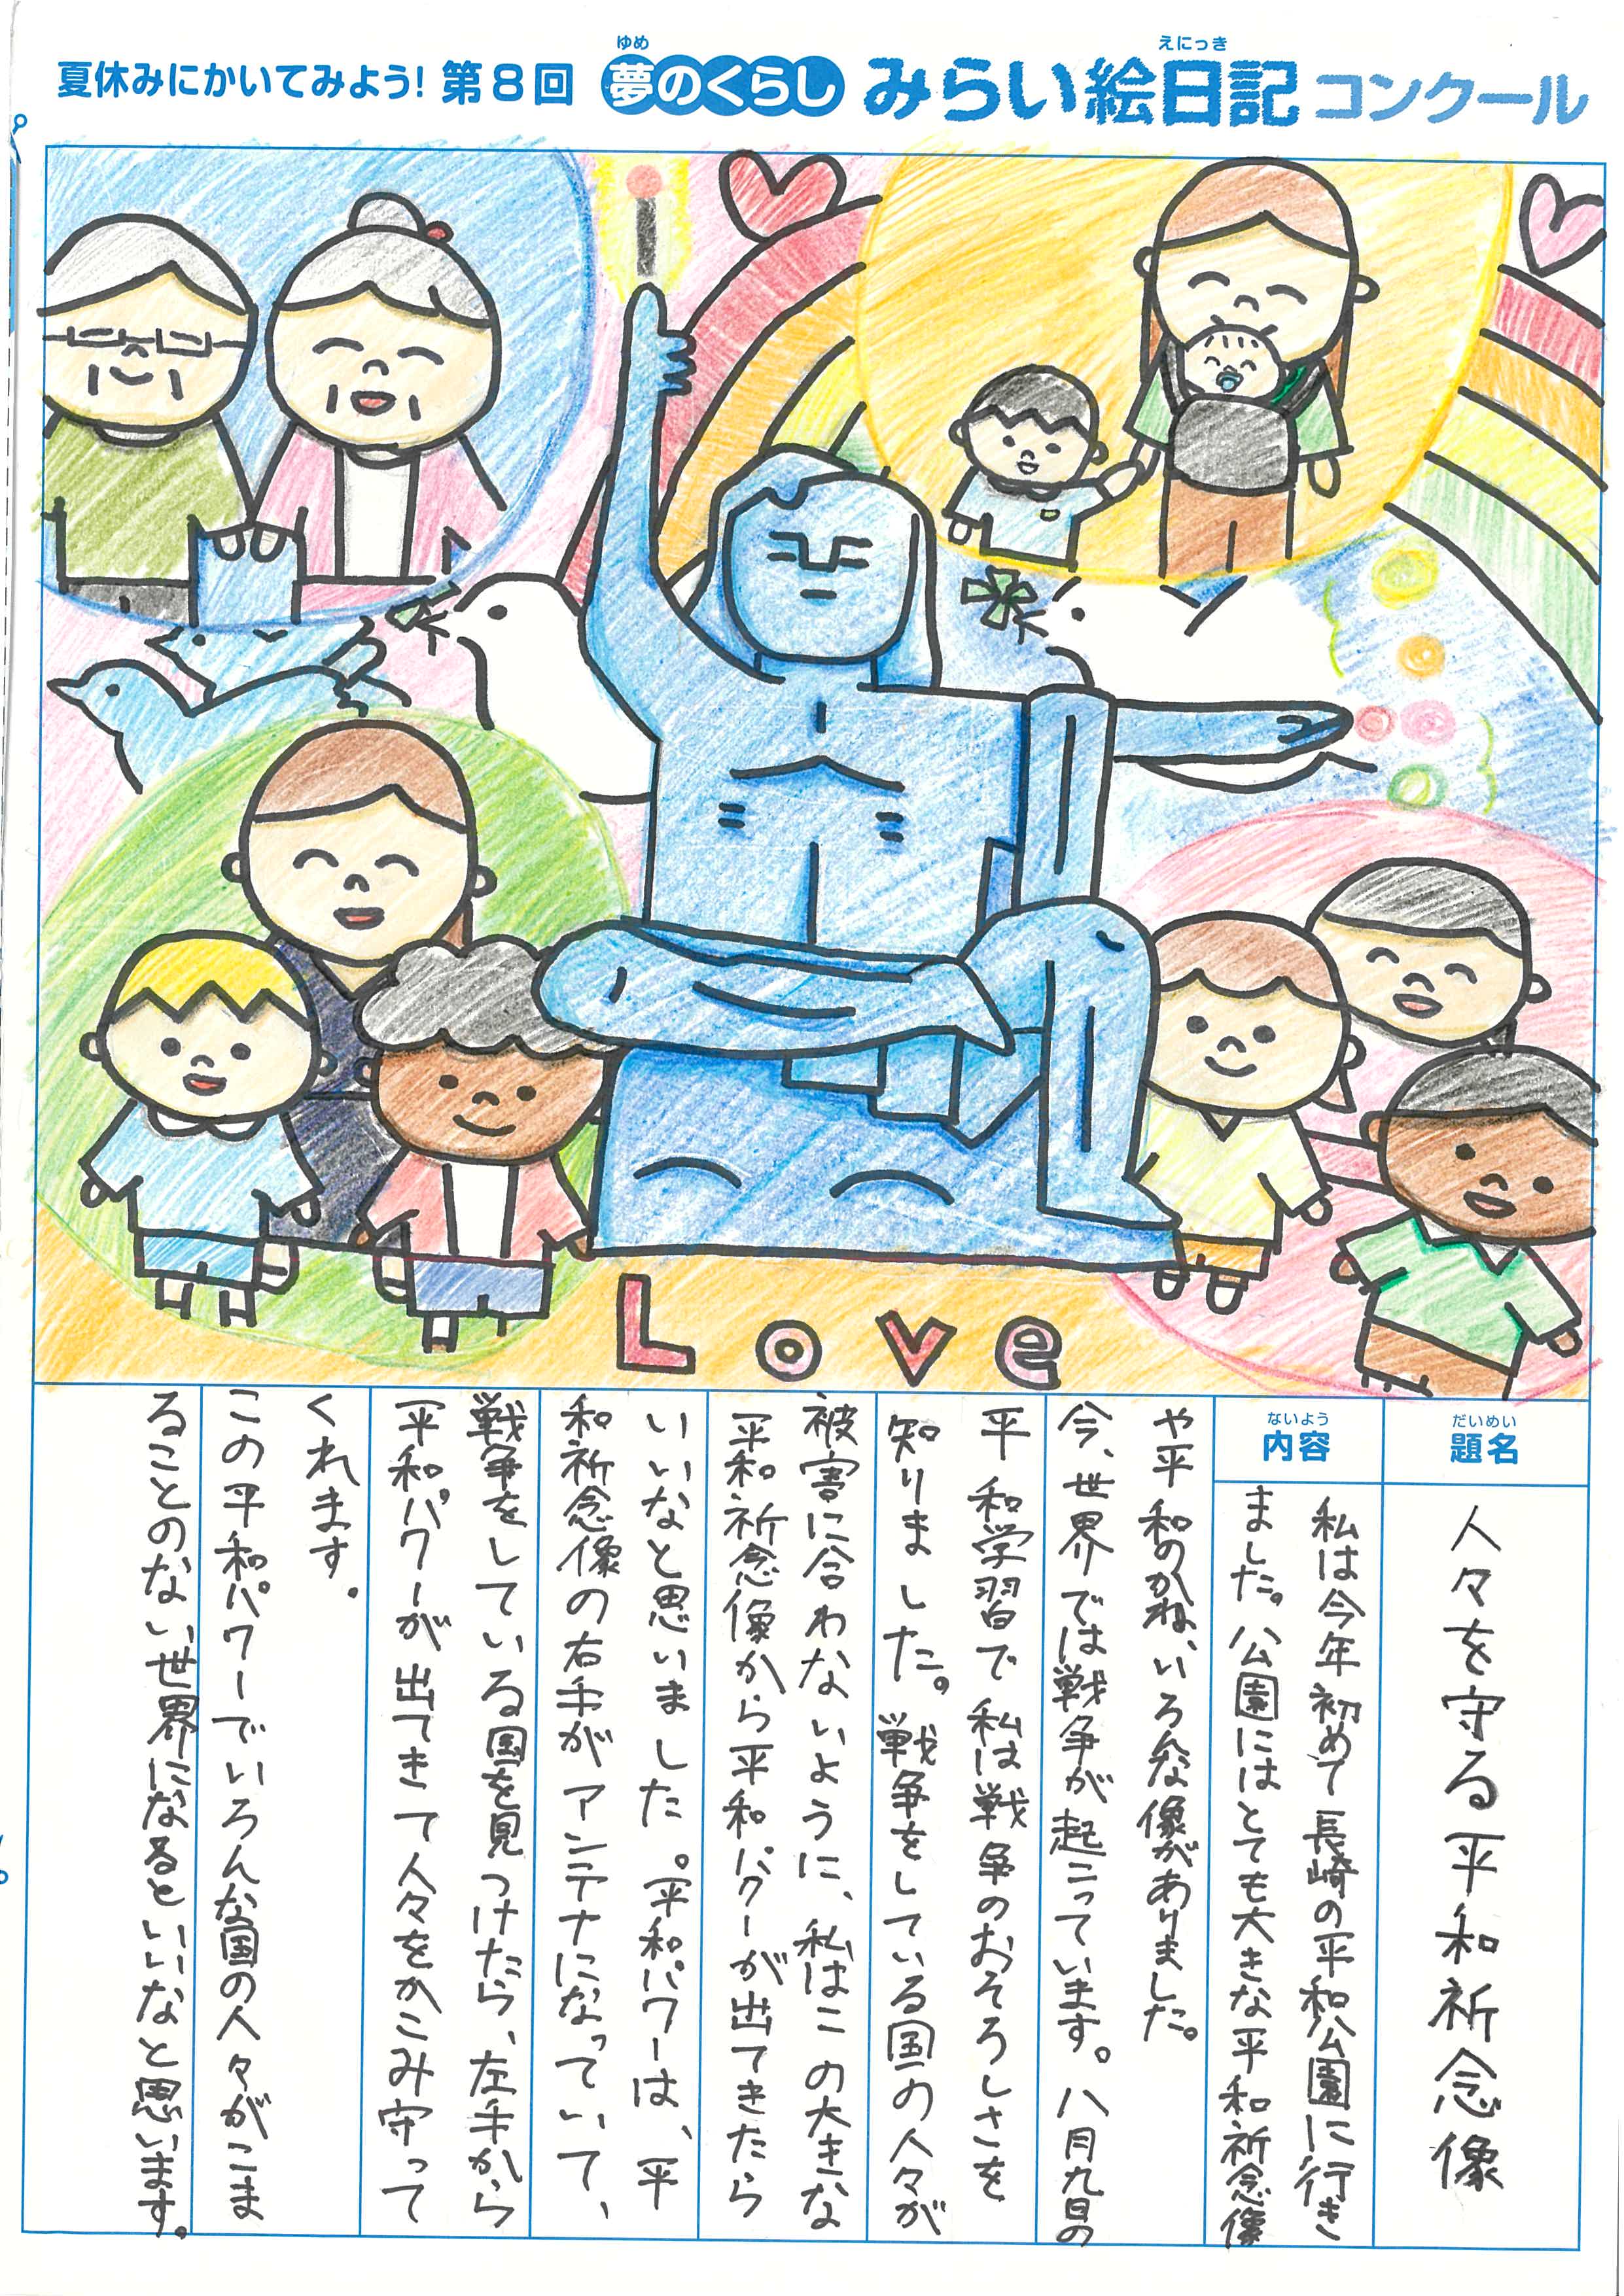 夏休みにかいてみよう! 第8回 夢のくらし みらい絵日記 コンクール
ゆめ
えにっき
Love
だいめい
題名
人々を守る平和祈念像
ないよう
内容
私は今年初めて長崎の平和公園に行き
ました。公園にはとても大きな平和祈念像
や平和のかね、いろんな像がありました。
今、世界では戦争が起こっています。八月九日の
平和学習で私は戦争のおそろしさを
知りました。戦争をしている国の人々が
被害に合わないように、私はこの大きな
平和祈念像から平和パワーが出てきたら
いいなと思いました。平和パワーは、平
和祈念像の右手がアンテナになっていて、
戦争をしている国を見つけたら、左手から
平和パワーが出てきて人々をかこみ守って
くれます。
この平和パワーでいろんな国の人々がこま
ることのない世界になるといいなと思います。